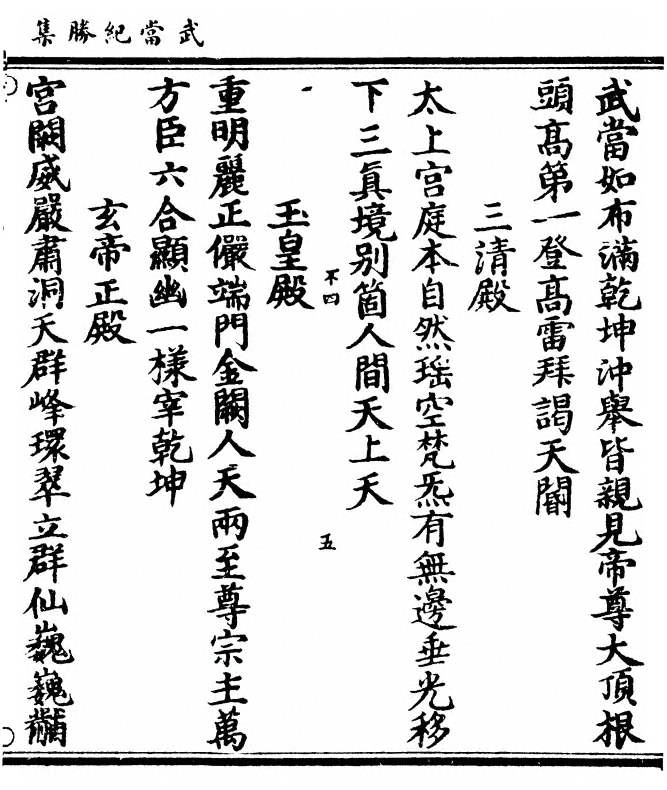 武當紀勝集
武當如布滿乾坤沖舉皆親見帝尊大頂根
頭髙第一登髙雷拜謁天閽
三清殿
太上宫庭本自然瑶空梵炁有無邊垂光移
下三眞境别箇人間天上天
不四
五
玉皇殿
重明麗正儼端門金闕人天兩至尊宗主萬
方臣六合顯幽一様宰乾坤
玄帝正殿
宫闕威嚴肅洞天群峰環翠立群仙巍巍黼